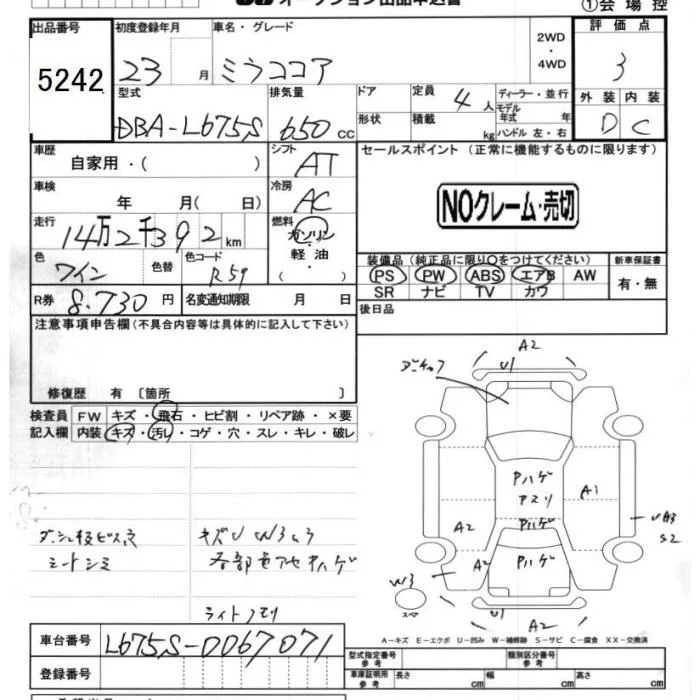 オークション出品申込書
①会場控
出品番号 初度登録年月 車名・グレード 評価点
5242 23 月 ミラココア 2WD ・ 4WD 3
型式 排気量 ドア 定員 ディーラー・並行 外装 内装
DBA-L675S 650 cc 4人 モデル年式 年 D C
形状 積載 kg ハンドル 左・右
車歴 シフト セールスポイント (正常に機能するものに限ります)
自家用・( ) AT
車検 冷房
年 月( 日) AC NOクレーム・売切
走行 燃料
14万2千392km ガソリン・軽油・( )
色 色替 色コード 装備品 (純正品に限り○をつけてください) 新車保証書
ワイン R59 PS PW ABS エアB AW 有・無
SR ナビ TV カワ
R券 8.730円 名変通知期限 月 日 後日品
注意事項申告欄(不具合内容等は具体的に記入して下さい)
修復歴 有 〔箇所 〕
検査員 FW キズ・飛石・ヒビ割・リペア跡・×要
記入欄 内装 キズ・汚レ・コゲ・穴・スレ・キレ・破レ
A2
U1
Pハゲ
Pハゲ
A1
A2
Pハゲ
A2
S2
W3
スペア
U1
A2
シートシミ 各部色アセPハゲ
ライトクモリ
A-キズ E-エクボ U-凹み W-補修跡 S-サビ C-腐食 XX-交換済
車台番号 L675S-0067071 型式指定番号 参考 類別区分番号 参考
登録番号 車庫証明用 参考 長さ cm 幅 cm 高さ cm